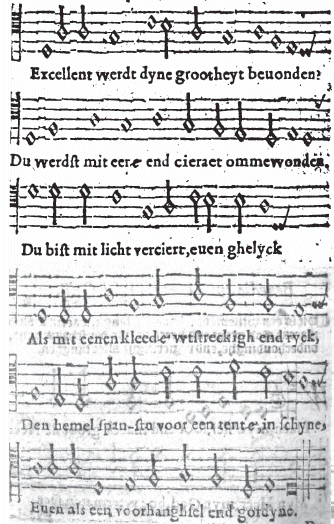 Excellent werdt dyne grootheyt beuonden?
Du werdst mit eere end cieraet ommewonden,
Du bist mit licht verciert, euen ghelyck
Als mit eenen kleede wtstreckigh end ryck,
Den hemel span-sto voor een tente, in schyne,
Euen als een voorhanghsel end gordyne.